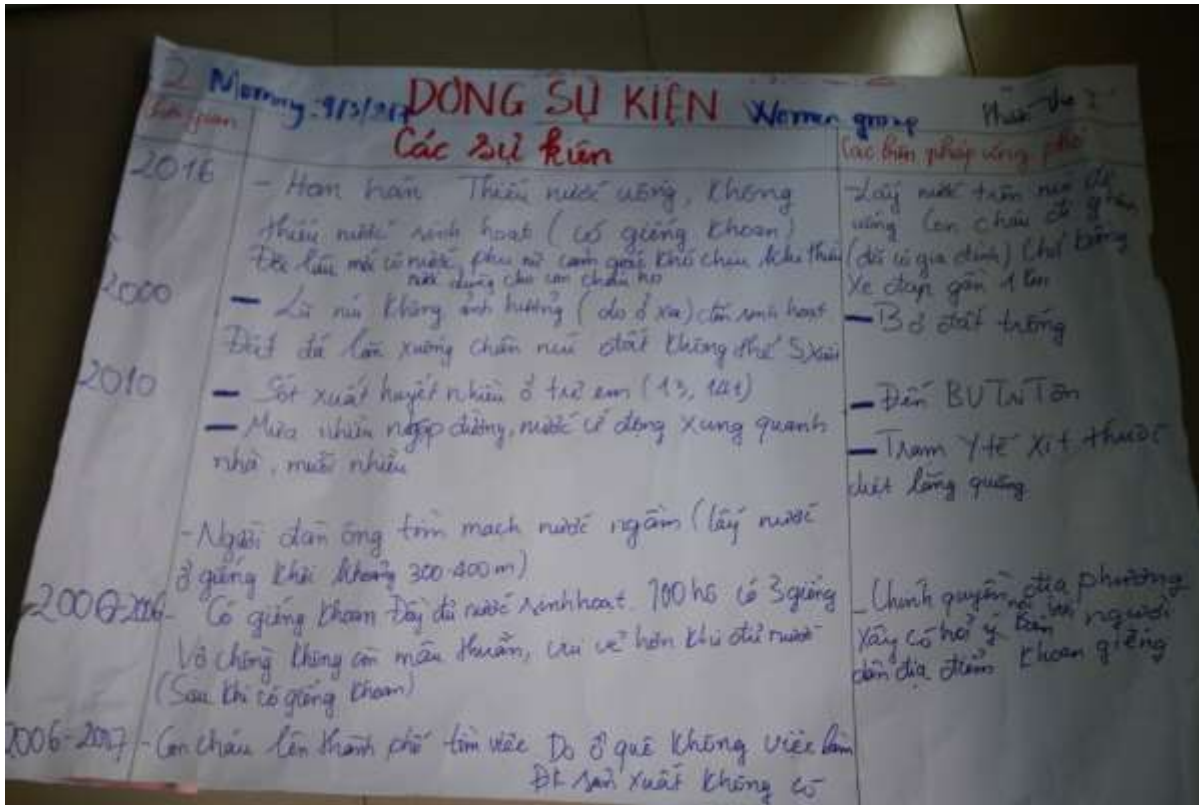 2 Morning: 9/3/2017 DONG SỰ KIỆN Women group
Thời gian
Các sự kiện
Các biện pháp ứng phó
2016
- Hạn hán Thiếu nước uống, không
thiếu nước sinh hoạt (có giếng khoan)
Đợi lâu mới có nước, phụ nữ cảm giác khó chịu khi thiếu
nước dùng cho con cháu họ
- Lấy nước trên núi để
uống Con cháu
(đã có gia đình) Chở bằng
Xe đạp gần 1 lần
2000
- Lũ núi không ảnh hưởng (do ở xa) đến sinh hoạt
Đất đá lăn xuống chân núi đất không thể S.xuất
- Bỏ đất trống
2010
- Sốt xuất huyết nhiều ở trẻ em (13, 14t)
- Mưa nhiều ngập đường, nước ứ đọng xung quanh
nhà, muỗi nhiều
- Đến BV Tri Tôn
- Trạm Y tế xịt thuốc
diệt lăng quăng
- Người đàn ông tìm mạch nước ngầm (lấy nước
ở giếng khơi khoảng 300-400m)
2000-2006 - Có giếng khoan Đầy đủ nước sinh hoạt. 100 hộ có 3 giếng
Vợ chồng không còn mâu thuẫn, vui vẻ hơn khi đủ nước
(Sau khi có giếng khoan)
- Chính quyền địa phương
xây có hỏi ý người
dân địa điểm khoan giếng
2006-2017 - Con cháu lên thành phố tìm việc Do ở quê không việc làm
ĐK sản xuất không có